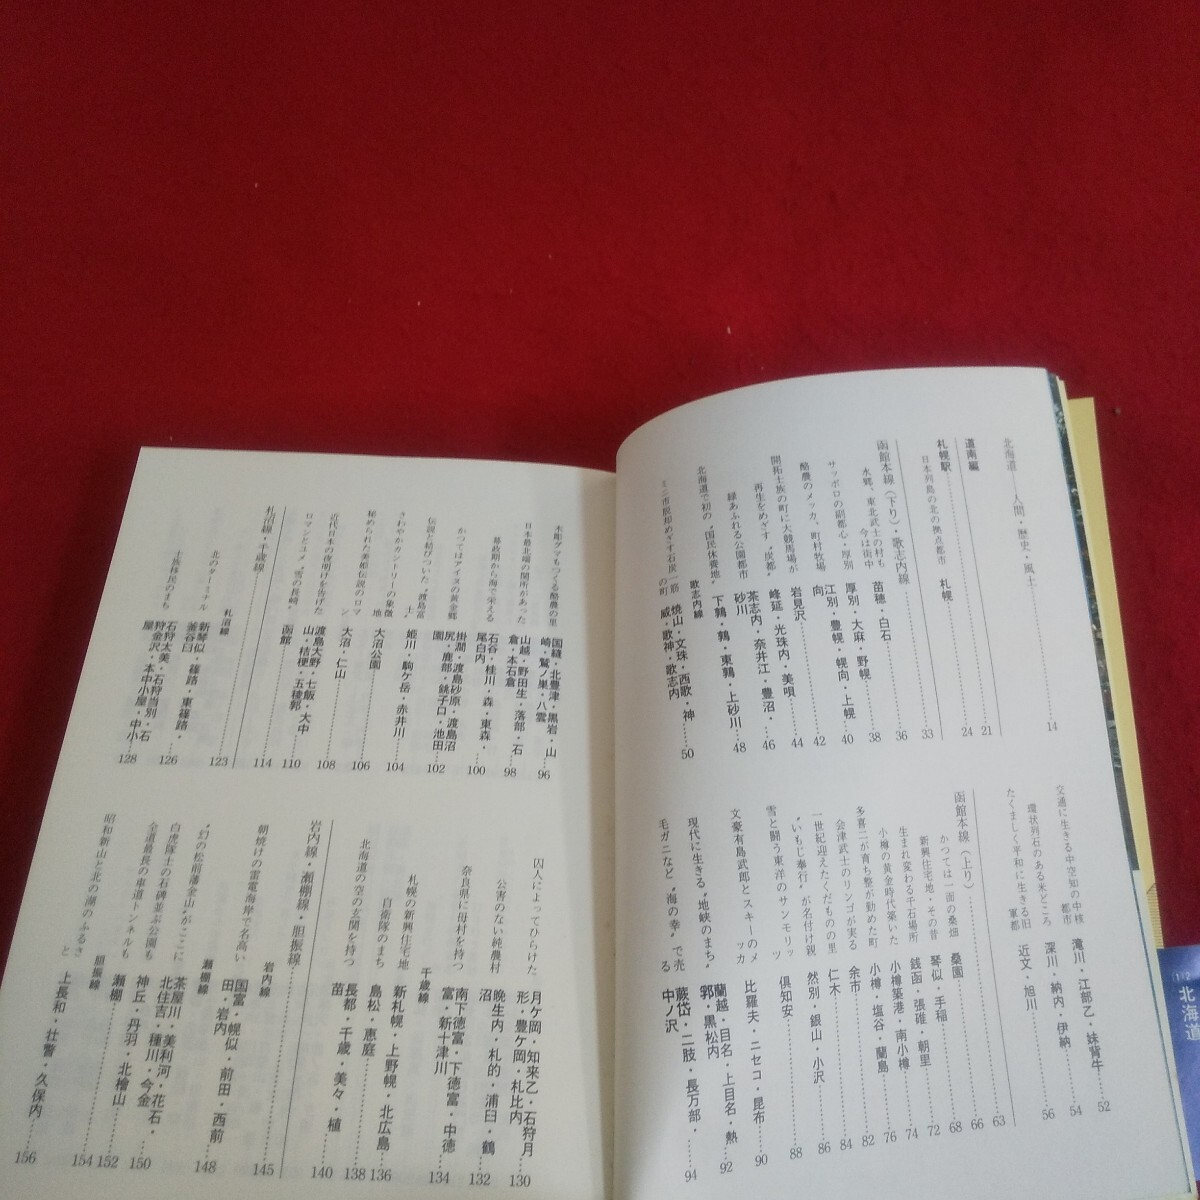 北海道──人間・歴史・風土 14
道南編 21
札幌駅 24
日本列島の北の拠点都市 札幌 33
函館本線(下り)・歌志内線 36
水郷、東北武士の村も今は街中 苗穂・白石 38
サッポロの副都心・厚別 厚別・大麻・野幌 40
酪農のメッカ、町村牧場 江別・豊幌・幌向・上幌向 42
開拓士族の町に大競馬場が 岩見沢 44
再生をめざす〝炭都〟 峰延・光珠内・美唄 46
緑あふれる公園都市 茶志内・奈井江・豊沼・砂川 48
北海道で初の〝国民休養地〟 下鶉・鶉・東鶉・上砂川
歌志内線
ミニ市脱却めざす石炭一筋の町 焼山・文珠・西歌・神威・歌神・歌志内 50
交通に生きる中空知の中核都市 滝川・江部乙・妹背牛 52
環状列石のある米どころ 深川・納内・伊納 54
たくましく平和に生きる旧軍都 近文・旭川 56
函館本線(上り) 63
かつては一面の桑畑 桑園 66
新興住宅地・その昔 琴似・手稲 68
生まれ変わる千石場所 銭函・張碓・朝里 72
小樽の黄金時代築いた 小樽築港・南小樽 74
多喜二が育ち整が勤めた町 小樽・塩谷・蘭島 76
会津武士のリンゴが実る 余市 82
一世紀迎えたくだものの里 仁木 84
〝いもに奉行〟が名付け親 然別・銀山・小沢 86
雪と闘う東洋のサンモリッツ 倶知安 88
文豪有島武郎とスキーのメッカ 比羅夫・ニセコ・昆布 90
現代に生きる〝地峡のまち〟 蘭越・目名・上目名・熱郛・黒松内 92
毛ガニなど〝海の幸〟で売る 蕨岱・二股・長万部・中ノ沢 94
木彫グマもつくる酪農の里 国縫・北豊津・黒岩・山崎・鷲ノ巣・八雲 96
日本最北端の関所があった 山越・野田生・落部・石倉・本石倉 98
幕政期から海で栄える 石谷・桂川・森・東森・尾白内 100
かつてはアイヌの黄金郷 掛澗・渡島砂原・渡島沼尻・鹿部・銚子口・池田園 102
伝説と結びついた〝渡島富士〟 姫川・駒ケ岳・赤井川 104
さわやかカントリーの象徴地 大沼公園 106
秘められた美姫伝説のロマン 大沼・仁山 108
近代日本の夜明けを告げた 渡島大野・七飯・大中山・桔梗・五稜郭 110
ロマンとユメ〝雪の長崎〟 函館 114
札沼線・千歳線 123
札沼線
北のターミナル 新琴似・篠路・東篠路・釜谷臼 126
士族移民のまち 石狩太美・石狩当別・石狩金沢・本中小屋・中小屋 128
囚人によってひらけた 月ケ岡・知来乙・石狩月形・豊ケ岡・札比内 130
公害のない純農村 晩生内・札的・浦臼・鶴沼 132
奈良県に母村を持つ 南下徳富・下徳富・中徳富・新十津川 134
千歳線
札幌の新興住宅地 新札幌・上野幌・北広島 136
自衛隊のまち 島松・恵庭 138
北海道の空の玄関を持つ 長都・千歳・美々・植苗 140
岩内線・瀬棚線・胆振線 145
岩内線
朝焼けの雷電海岸で名高い 国富・幌似・前田・西前田・岩内 148
瀬棚線
〝幻の松前藩金山〟がここに 茶屋川・美利河・花石・北住吉・種川・今金 150
白虎隊士の石碑並ぶ公園も 神丘・丹羽・北檜山 152
全道最長の車道トンネルも 瀬棚 154
胆振線
昭和新山と北の湖のふるさと 上長和・壮瞥・久保内 156
北海道